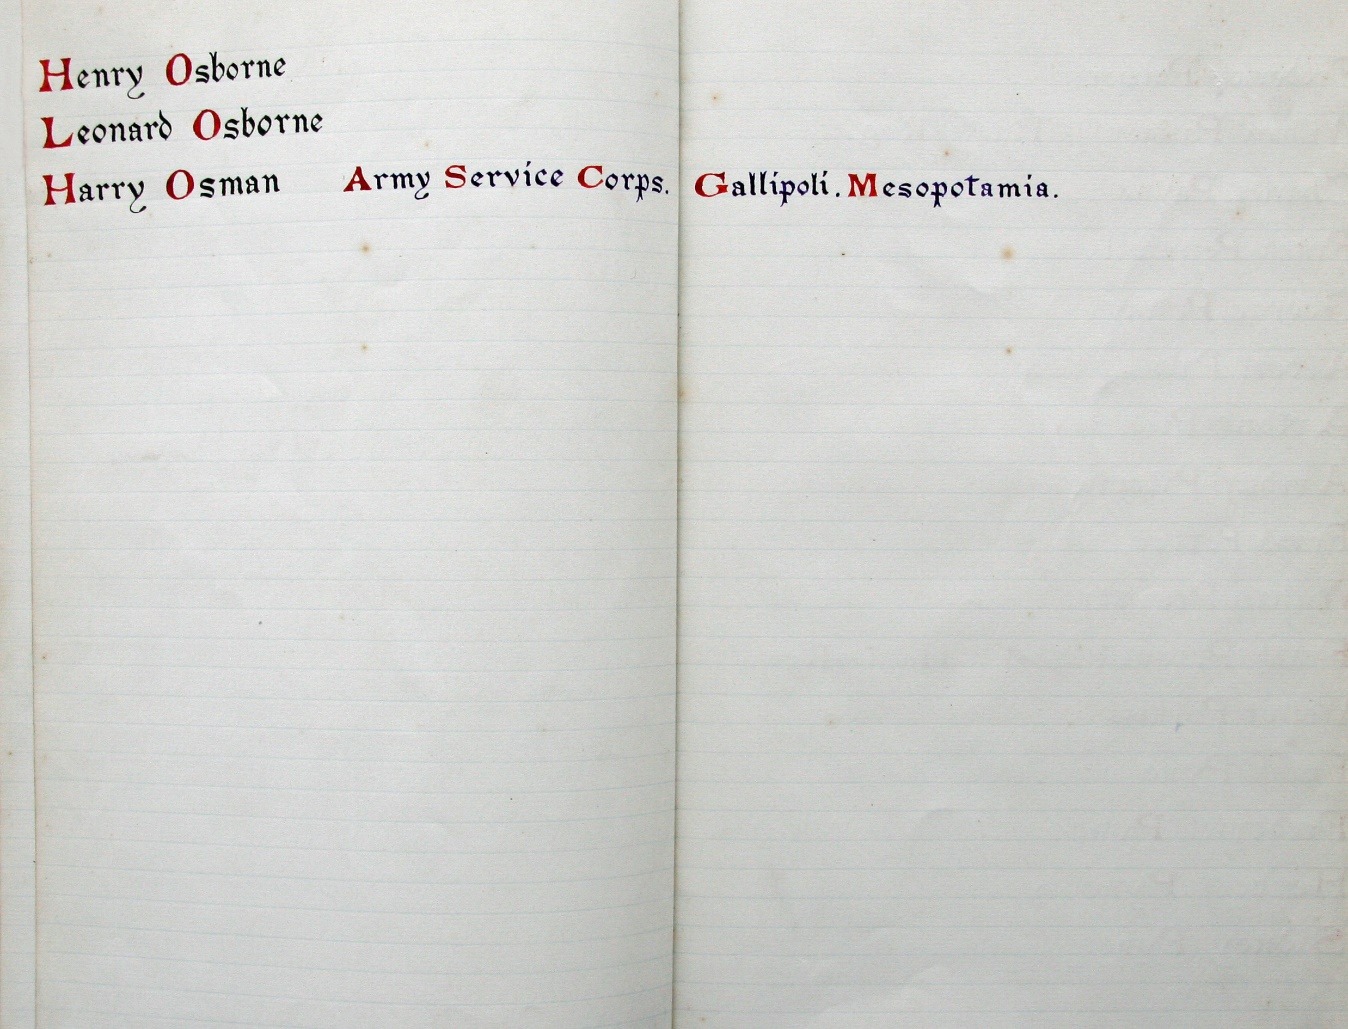 Henry Osborne
Leonard Osborne
Harry Osman Army Service Corps. Gallipoli. Mesopotamia.